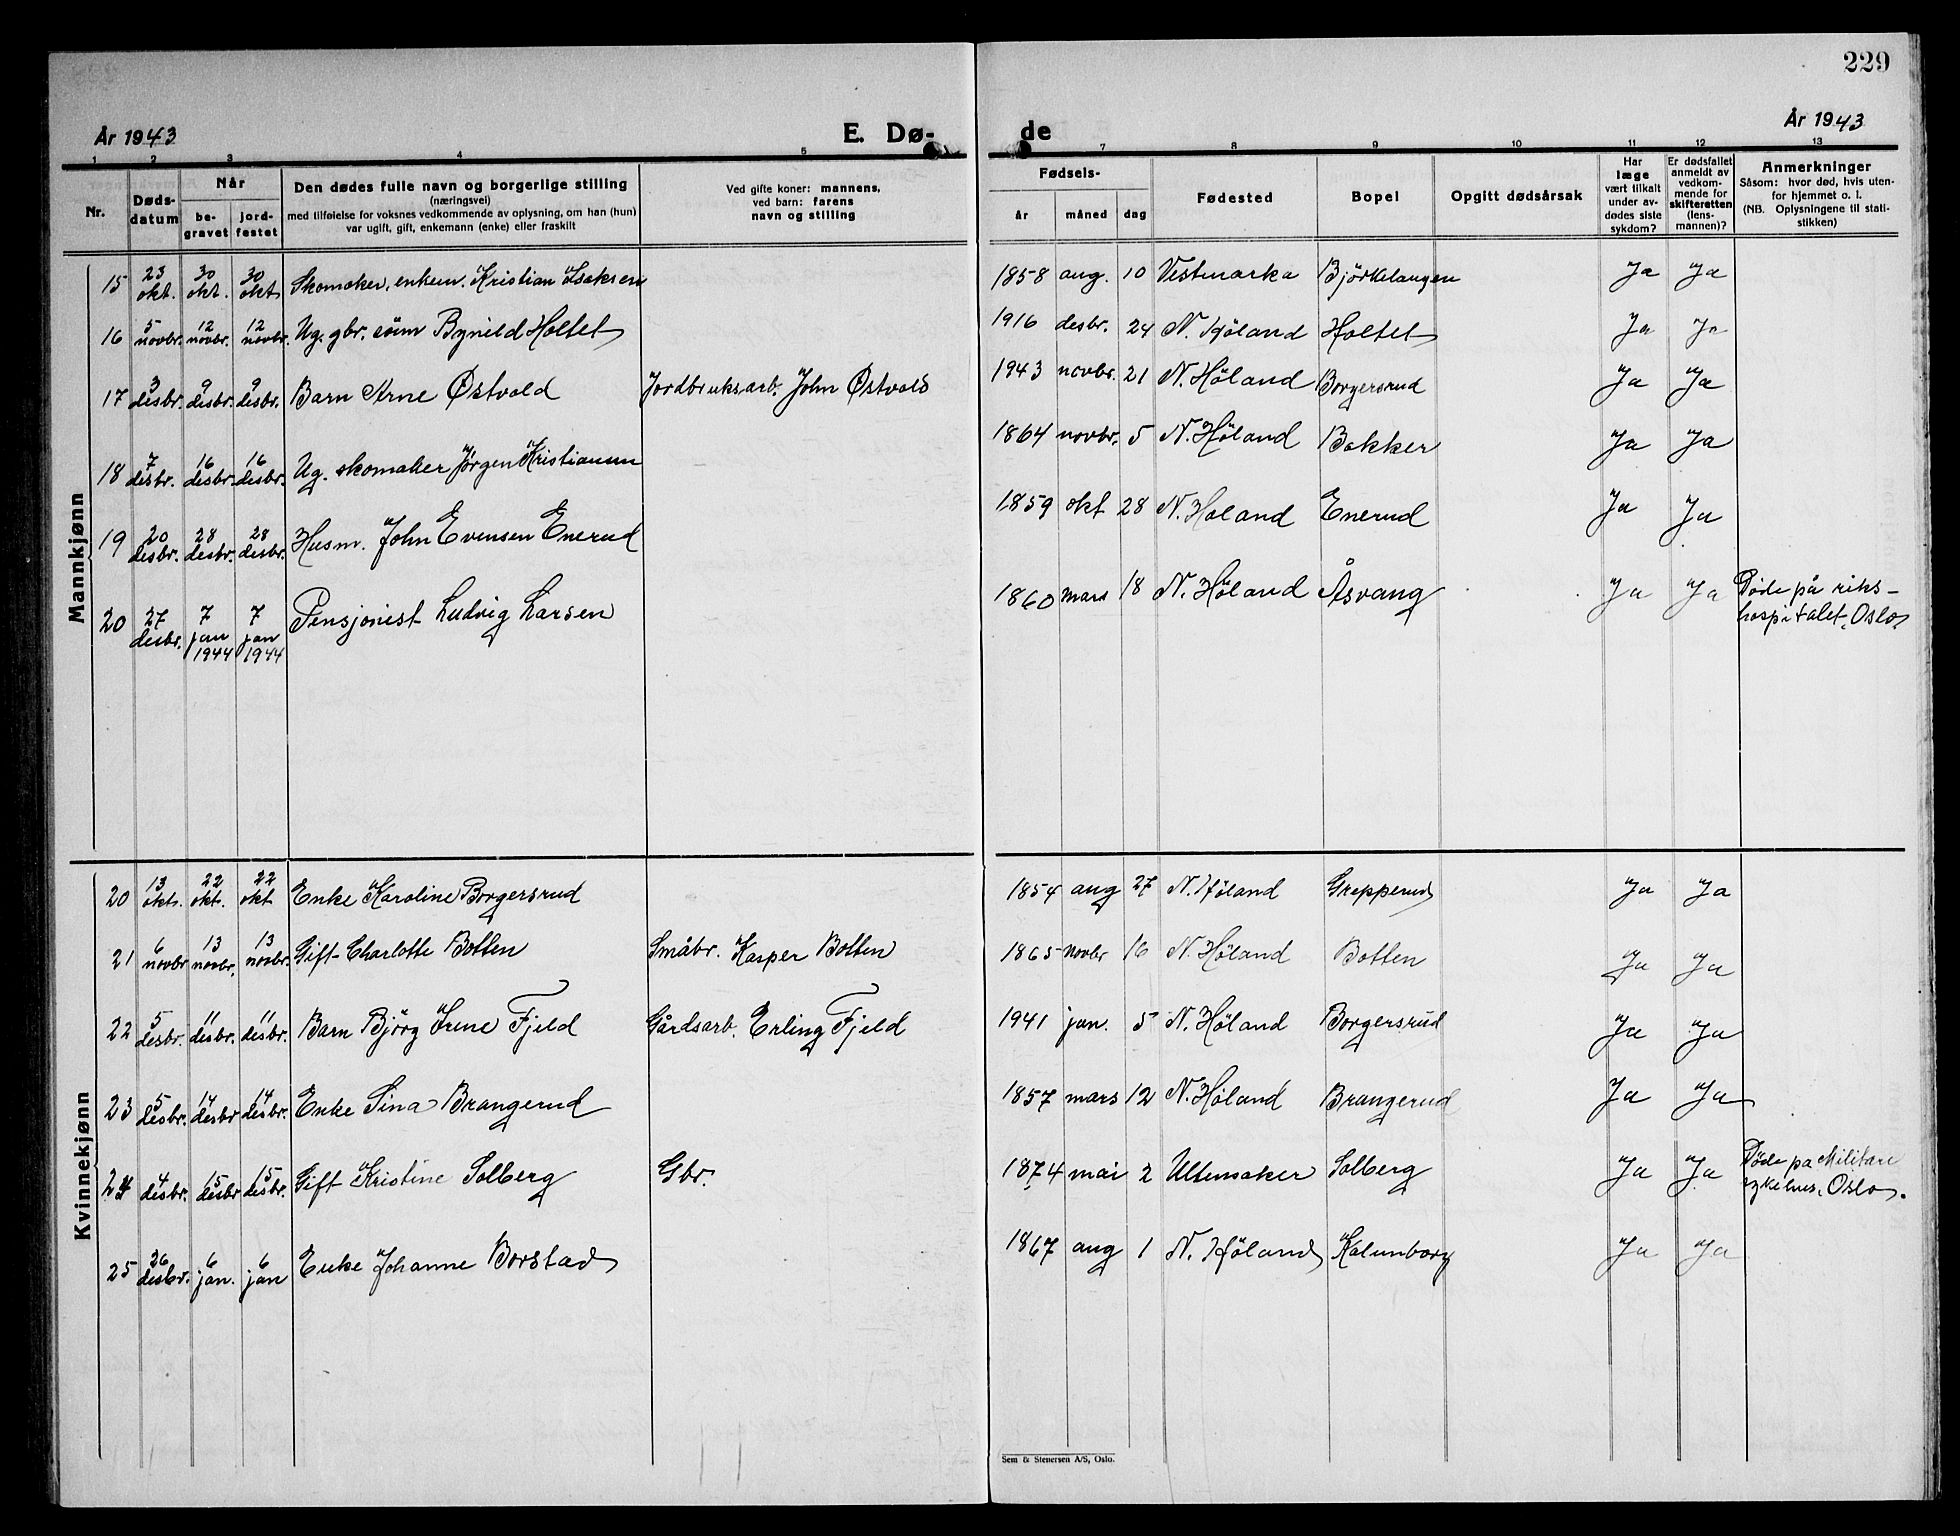 229
År 1943 E. Dø- de År 1943
1 2 3 4 5 7 8 9 10 11 12 13
Nr. Døds-datum Når be-gravet jord-festet Den dødes fulle navn og borgerlige stilling (næringsvei) med tilføielse for voksnes vedkommende av oplysning, om han (hun) var ugift, gift, enkemann (enke) eller fraskilt Ved gifte koner: mannens, ved barn: farens navn og stilling Fødsels- år måned dag Fødested Bopel Opgitt dødsårsak Har læge vært tilkalt under av-dødes siste sykdom? Er dødsfallet anmeldt av vedkom-mende for skifteretten (lens-mannen)? Anmerkninger Såsom: hvor død, hvis uten-for hjemmet o. l. (NB. Oplysningene til stati-stikken)
Mannkjønn
15 23 okt. 30 okt. 30 okt Skomaker, enkem. Kristian Isaksen 1858 aug. 10 Vestmarka Bjørkelangen Ja Ja
16 5 novbr. 12 novbr. 12 novbr. Ug. gbr. sönn Holtet 1916 desbr. 24 N. Höland Holtet Ja Ja
17 3 desbr. 9 desbr. 9 desbr. Barn Arne Østvold Jordbruksarb. John Østvold 1943 novbr. 21 N. Höland Borgersrud Ja Ja
18 7 desbr. 16 desbr. 16 desbr. Ug. skomaker Jörgen Kristiansen 1864 novbr. 5 N. Höland Bakker Ja Ja
19 20 desbr. 28 desbr. 28 desbr. Husm. John Evensen Enerud 1859 okt 28 N. Höland Enerud Ja Ja
20 27 desbr. 7 jan 1944 7 jan 1944 Pensjonist Ludvig Larsen 1860 mars 18 N. Höland Åsvang Ja Ja Döde på riks-
hospitalet, Oslo.
Kvinnekjønn
20 13 okt. 22 okt. 22 okt Enke Karoline Borgersrud 1854 aug 27 N. Höland Grepperud Ja Ja
21 6 novbr 13 novbr. 13 novbr. Gift Charlotte Botten Småbr. Kasper Botten 1865 novbr 16 N. Höland Botten Ja Ja
22 5 desbr. 11 desbr. 11 desbr. Barn Björg Irene Fjeld Gårdsarb. Erling Fjeld 1941 jan. 5 N. Höland Borgersrud Ja Ja
23 5 desbr. 14 desbr 14 desbr. Enke Sina Brangerud 1857 mars 12 N. Höland Brangerud Ja Ja
24 4 desbr. 15 desbr 15 desbr. Gift Kristine Solberg Gbr. 1874 mai 2 Ullensaker Solberg Ja Ja Döde på Militære
sykehus, Oslo.
25 26 desbr. 6 jan. 6 jan Enke Johanne Borstad 1867 aug 1 N. Höland Kalunborg Ja Ja
Sem & Stenersen A/S, Oslo.